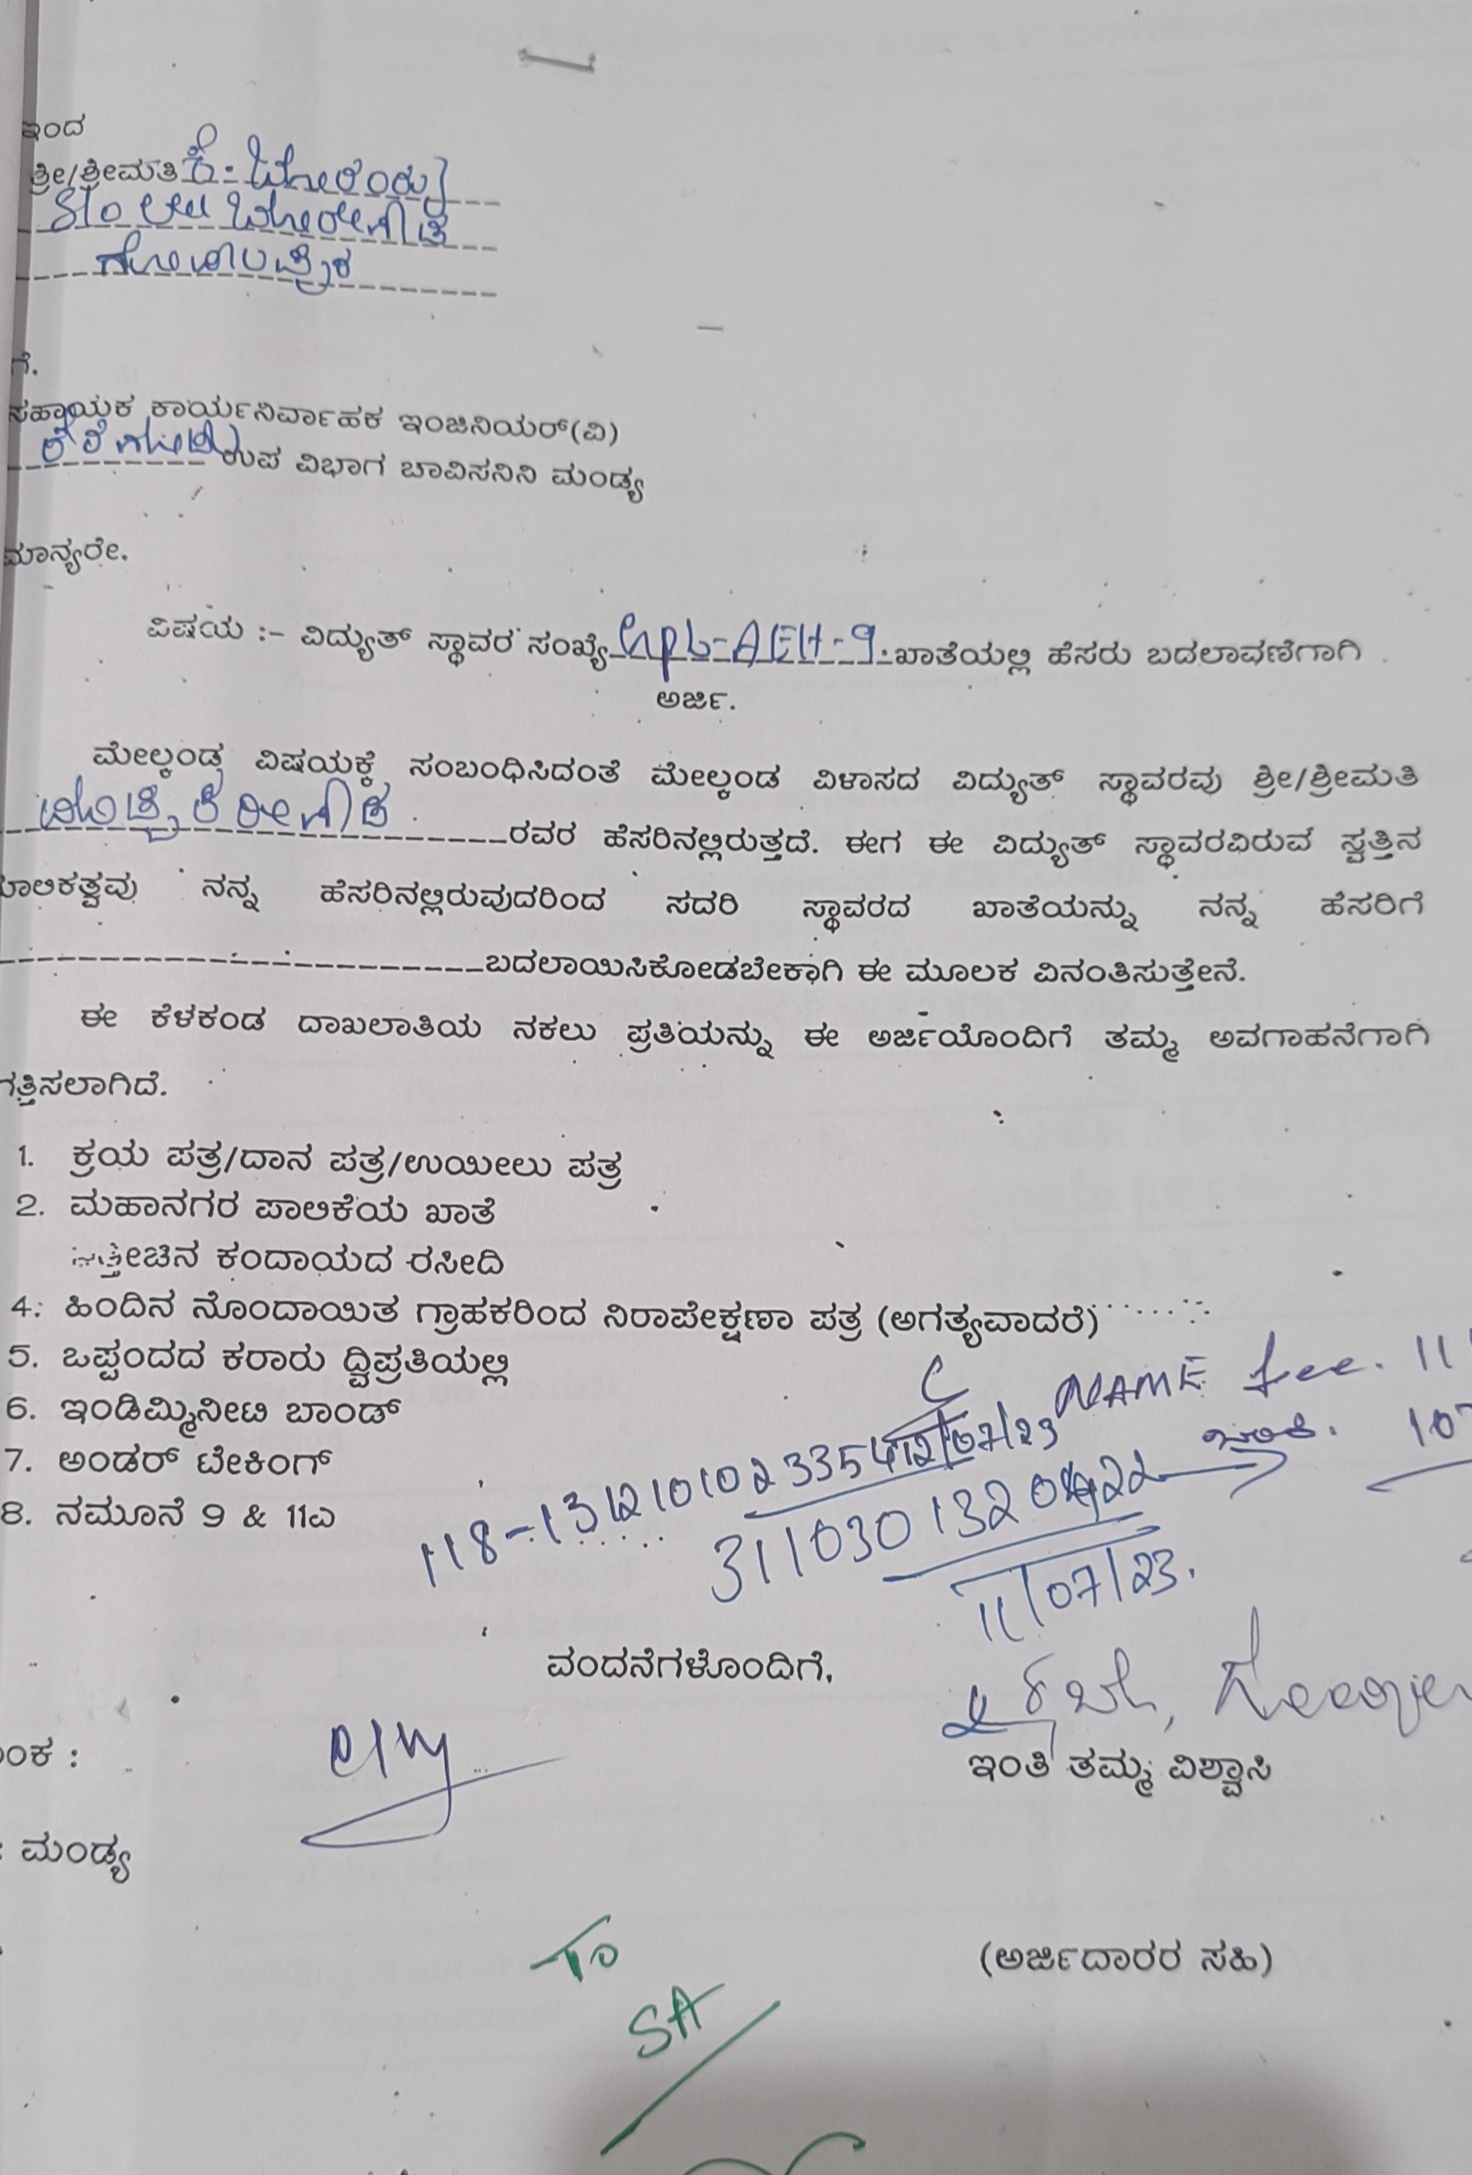 ಇಂದ
ಶ್ರೀ/ಶ್ರೀಮತಿ ಕೆ. ಬೋರಯ್ಯ
S/o ಲೇಟ್ ಬೋರೇಗೌಡ
ಗೋಪಾಲಪುರ
ಗೆ.
ಸಹಾಯಕ ಕಾರ್ಯನಿರ್ವಾಹಕ ಇಂಜಿನಿಯರ್(ವಿ)
ಕೆರೆಗೋಡು ಉಪ ವಿಭಾಗ ಚಾವಿಸನಿನಿ ಮಂಡ್ಯ
ಮಾನ್ಯರೇ.
ವಿಷಯ :- ವಿದ್ಯುತ್ ಸ್ಥಾವರ ಸಂಖ್ಯೆ GPL-AEH-9. ಖಾತೆಯಲ್ಲಿ ಹೆಸರು ಬದಲಾವಣೆಗಾಗಿ
ಅರ್ಜಿ.
ಮೇಲ್ಕಂಡ ವಿಷಯಕ್ಕೆ ಸಂಬಂಧಿಸಿದಂತೆ ಮೇಲ್ಕಂಡ ವಿಳಾಸದ ವಿದ್ಯುತ್ ಸ್ಥಾವರವು ಶ್ರೀ/ಶ್ರೀಮತಿ
ರವರ ಹೆಸರಿನಲ್ಲಿರುತ್ತದೆ. ಈಗ ಈ ವಿದ್ಯುತ್ ಸ್ಥಾವರವಿರುವ ಸ್ವತ್ತಿನ
ಾಲಿಕತ್ವವು ನನ್ನ ಹೆಸರಿನಲ್ಲಿರುವುದರಿಂದ ಸದರಿ ಸ್ಥಾವರದ ಖಾತೆಯನ್ನು ನನ್ನ ಹೆಸರಿಗೆ
ಬದಲಾಯಿಸಿಕೋಡಬೇಕಾಗಿ ಈ ಮೂಲಕ ವಿನಂತಿಸುತ್ತೇನೆ.
ಈ ಕೆಳಕಂಡ ದಾಖಲಾತಿಯ ನಕಲು ಪ್ರತಿಯನ್ನು ಈ ಅರ್ಜಿಯೊಂದಿಗೆ ತಮ್ಮ ಅವಗಾಹನೆಗಾಗಿ
ಗತ್ತಿಸಲಾಗಿದೆ.
1. ಕ್ರಯ ಪತ್ರ/ದಾನ ಪತ್ರ/ಉಯೀಲು ಪತ್ರ
2. ಮಹಾನಗರ ಪಾಲಿಕೆಯ ಖಾತೆ
ಕಂದಾಯದ ರಸೀದಿ
4. ಹಿಂದಿನ ನೊಂದಾಯಿತ ಗ್ರಾಹಕರಿಂದ ನಿರಾಪೇಕ್ಷಣಾ ಪತ್ರ (ಅಗತ್ಯವಾದರೆ)
5. ಒಪ್ಪಂದದ ಕರಾರು ದ್ವಿಪ್ರತಿಯಲ್ಲಿ
6. ಇಂಡಿಮ್ನಿನೀಟಿ ಬಾಂಡ್
7. ಅಂಡರ್ ಟೇಕಿಂಗ್
8. ನಮೂನೆ 9 & 11ಎ
NAME fee. 11
12/07/23
11/07/23.
ವಂದನೆಗಳೊಂದಿಗೆ,
ಂಕ :
ಇಂತಿ ತಮ್ಮ ವಿಶ್ವಾಸಿ
: ಮಂಡ್ಯ
(ಅರ್ಜಿದಾರರ ಸಹಿ)
To
SA